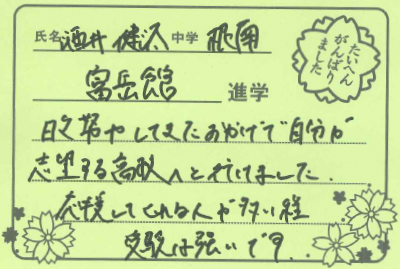 氏名 酒井 健以 中学 飛南
富岳館 進学
日々努力してきたおかげで自分が
志望する高校へと行けました.
応援してくれる人が多い程
受験は強いです..
たいへん
がんばり
ました